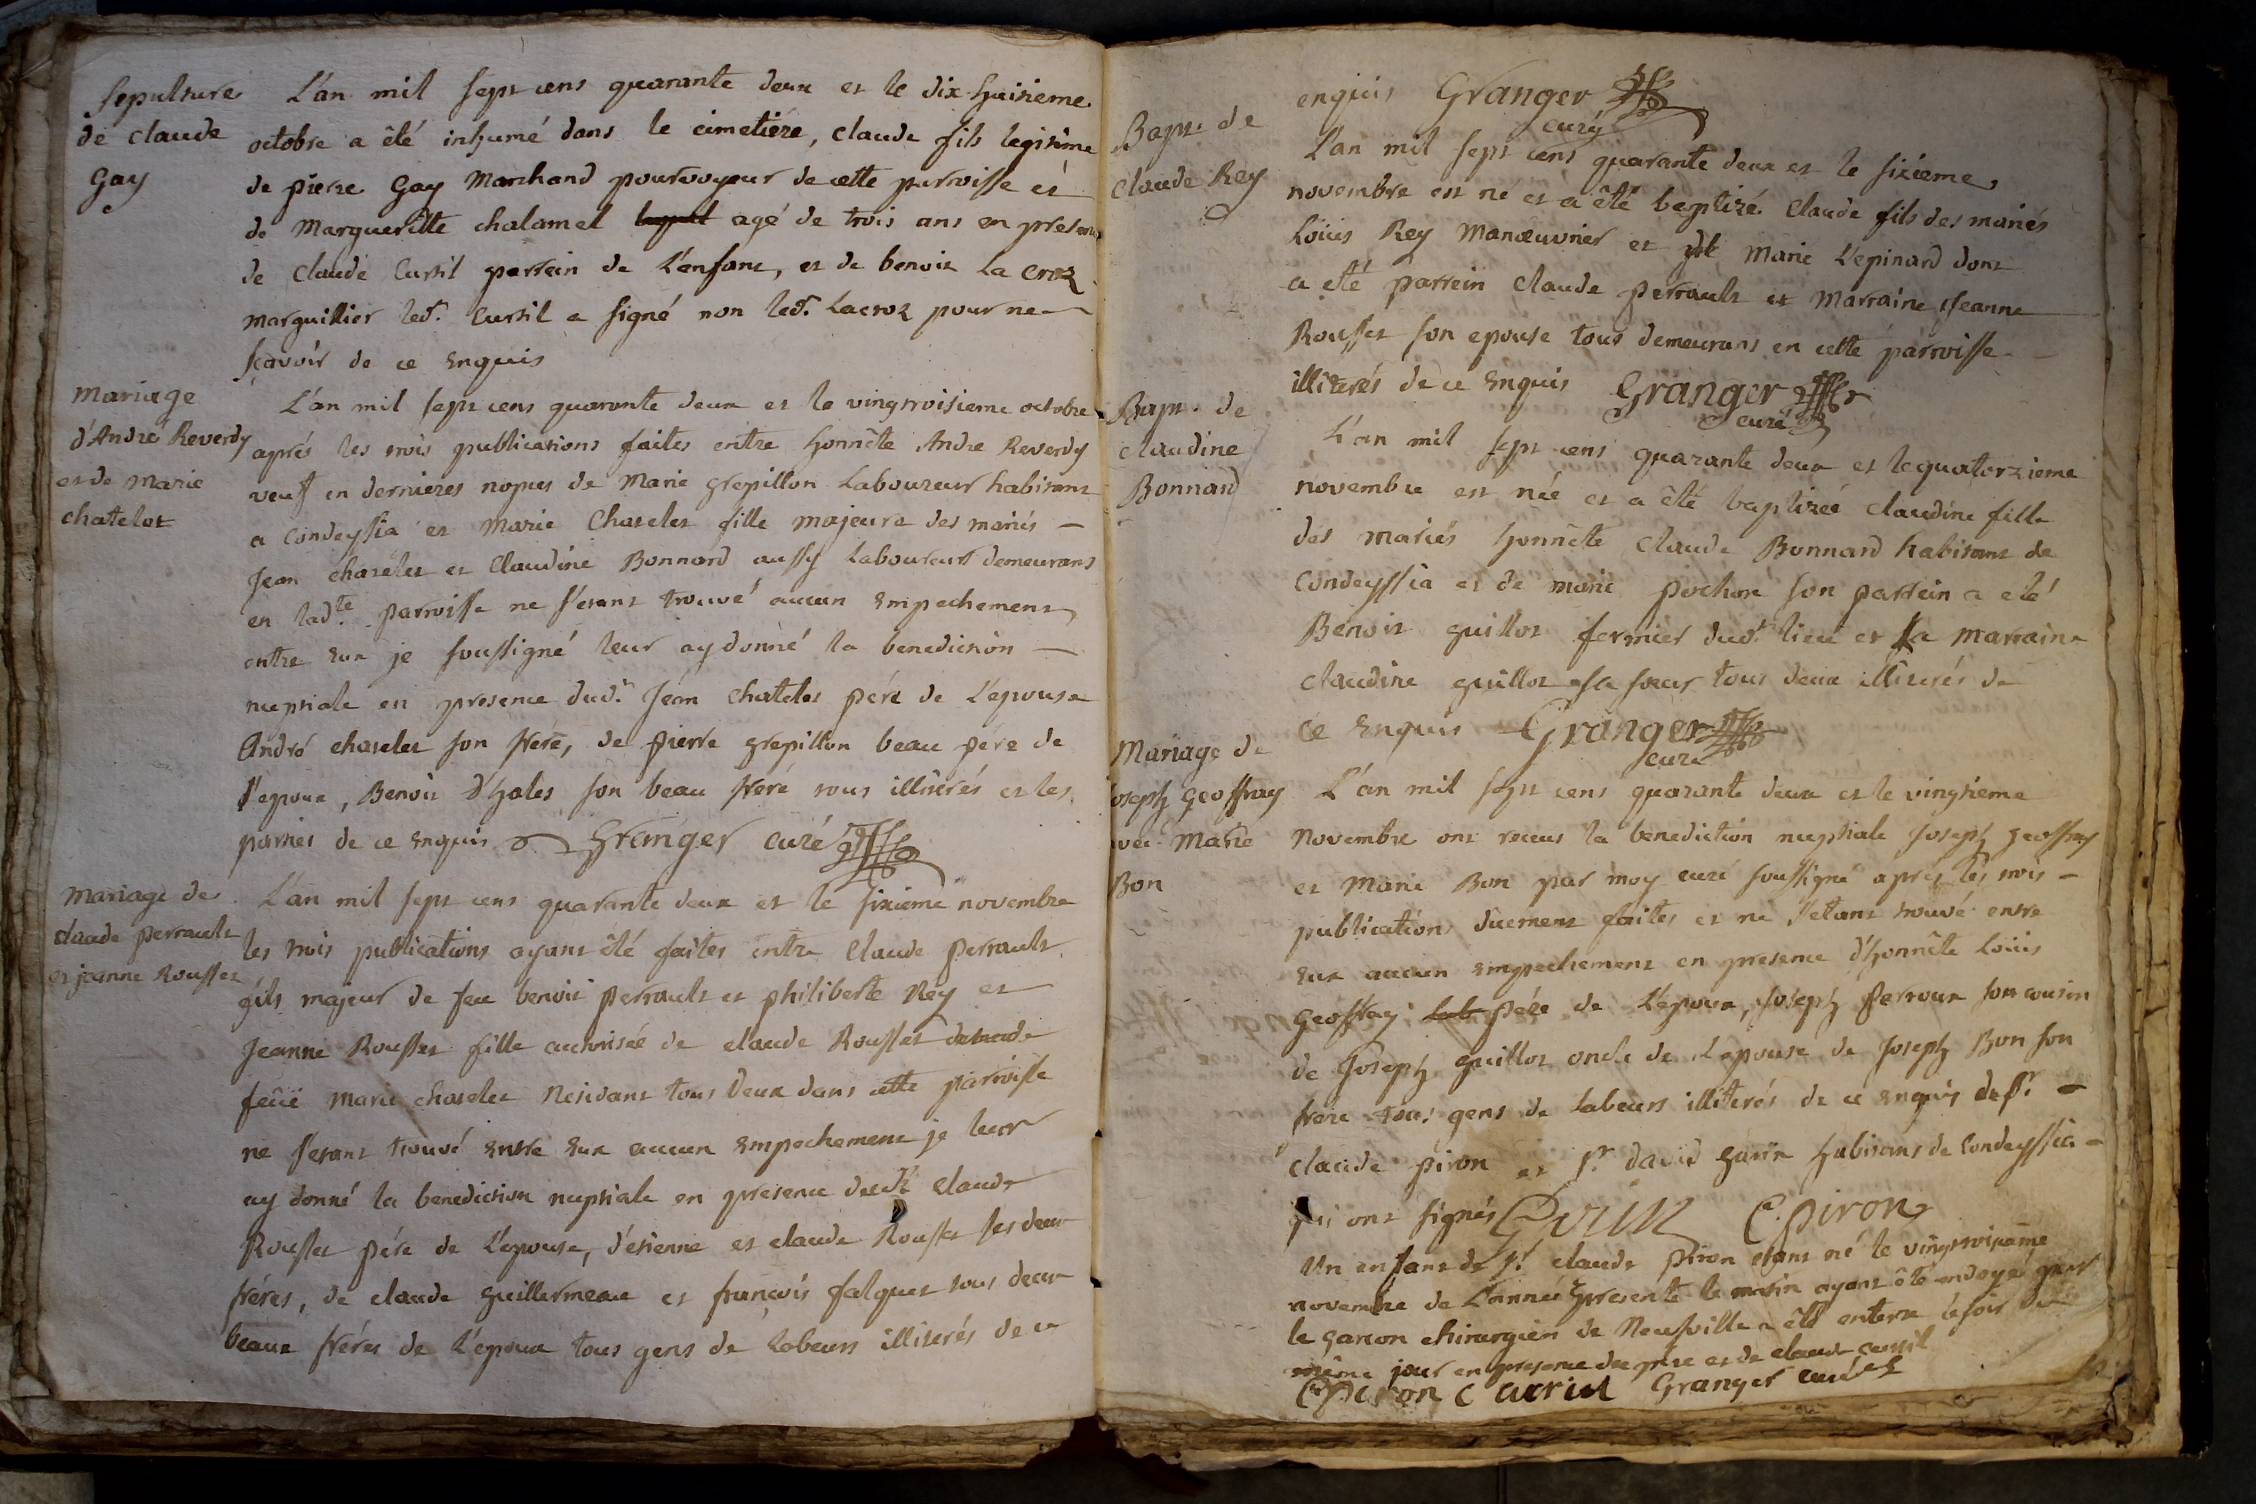 Sepulture
de claude
Gay
L'an mil sept cens quarante deux et le dix huitieme
octobre a êté inhumé dans le cimetiére, claude fils legitime
de pierre Gay Marchand pourvoyeur de cette parroisse et
de Margueritte chalamel agé de trois ans en presence
de claude Curtil parrein de L'enfant, et de benoit La croz
marguillier led.t Curtil a signé non led.t Lacroz pour ne
sçavoir de ce enquis
Mariage
d'André Reverdy
et de marie
chatelet
L'an mil sept cens quarante deux et le vingtroisieme octobre
aprés les trois publications faites entre honnête Andre Reverdy
veuf en dernieres nopces de Marie grepillon Laboureur habitant
a Condeyssia et Marie Chatelet fille majeure des mariés
Jean chatelet et Claudine Bonnard aussy Laboureurs demeurans
en lad.te parroisse ne s'etant trouvé aucun empechement
entre eux je soussigné leur ay donné la benediction
nuptiale en presence dud.t Jean chatelet pére de L'epouse
André chatelet son frere, de pierre grepillon beau pére de
l'epoux, Benoit d'hales son beau frere tous illiterés et les
parties de ce enquis Granger curé
Mariage de
claude perrault
et jeanne Rousset
L'an mil sept cens quarante deux et le sixieme novembre
les trois publications ayant êté faites entre Claude perrault
fils majeur de feu benoit perrault et philiberte Rey et
Jeanne Rousset fille authorisée de claude Rousset et de
feüe Marie chatelet Residant tous deux dans cette parroisse
ne s'etant trouvé entre eux aucun empechement je leur
ay donné la benediction nuptiale en presence dud.t claude
Rousset pére de L'epouse, d'etienne et claude Rousset ses deux
fréres, de claude guillermeau et françois falquet tous deux
beaux fréres de L'epoux tous gens de Labeurs illiterés de ce
enquis Granger
curé
Bapt. de
claude Rey
L'an mil sept cens quarante deux et le sixieme
novembre est né et a êté baptizé Claude fils des mariés
Loüis Rey Manœuvrier et Marie L'epinard dont
a eté parrein Claude perrault et Marraine Jeanne
Rousset son epouse tous demeurans en cette parroisse
illiterés de ce enquis Granger
curé
Bapt. de
claudine
Bonnard
L'an mil sept cens quarante deux et le quatorzieme
novembre est née et a êté baptizée claudine fille
des mariés honnête Claude Bonnard habitant de
Condeyssia et de marie pochon son parrein a eté
Benoit guillot fermier dud.t lieu et sa marraine
claudine guillot sa sœur tous deux illiterés de
ce enquis Granger
curé
Mariage de
Joseph Geoffray
avec Marie
Bon
L'an mil sept cens quarante deux et le vingtieme
Novembre ont receus la benediction nuptiale Joseph Geoffray
et Marie Bon par moy curé soussigné aprés les trois
publications düement faites et ne s'etant trouvé entre
eux aucun empechement en presence d'honnête Loüis
Geoffray pére de L'epoux, Joseph perroux son cousin
de Joseph guillot oncle de L'epouse de Joseph Bon son
frere tous gens de Labeurs illiterés de ce enquis de Sr.
claude piron et Sr. david gurin habitans de Condeyssia
qui ont signés Gurin C. piron
Un enfant de Sr. claude piron etant né le vingtroisieme
novembre de L'année presente le matin ayant êté ondoyé par
le garcon chirurgien de Neufville a êté enterré le soir du
même jour en presence du pere et de claude curtil
C piron C Curtil Granger curé